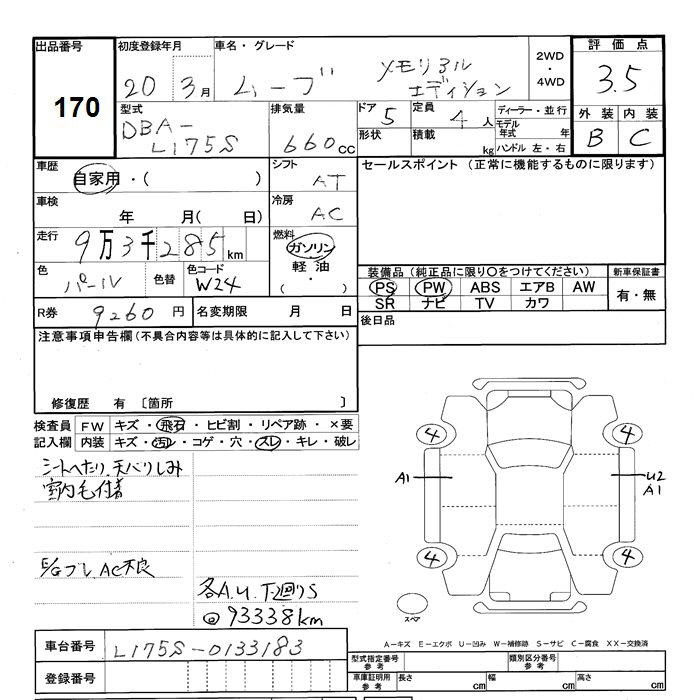 出品番号 170
初度登録年月 20 3月
車名・グレード ムーブ メモリアル エディション
2WD・4WD
評価点 3.5
外装 内装
B C
型式 DBA-L175S
排気量 660cc
ドア 5
形状
定員 4人
積載 kg
ディーラー・並行
モデル年式 年
ハンドル 左・右
車歴 自家用・( )
シフト AT
セールスポイント (正常に機能するものに限ります)
車検 年 月( 日)
冷房 AC
走行 9万3千285km
燃料 ガソリン
軽油
( ・ )
色 パール
色替
色コード W24
装備品(純正品に限り○をつけてください)
新車保証書
PS PW ABS エアB AW
SR ナビ TV カワ
有・無
R券 9260円
名変期限 月 日
後日品
注意事項申告欄(不具合内容等は具体的に記入して下さい)
修復歴 有 〔箇所 〕
検査員記入欄
FW キズ・飛石・ヒビ割・リペア跡・×要
内装 キズ・汚レ・コゲ・穴・スレ・キレ・破レ
シートへたり、天バリしみ
室内毛付着
E/Gブレ、AC不良
各A.U.下廻りS
@93338km
4 4
A1 U2
A1
4 4
スペア
A-キズ E-エクボ U-凹み W-補修跡 S-サビ C-腐食 XX-交換済
車台番号 L175S-0133183
登録番号
型式指定番号 参考
類別区分番号 参考
車庫証明用 参考 長さ cm 幅 cm 高さ cm